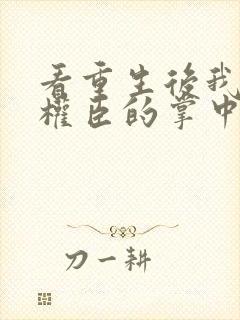 看重生後我
權臣的掌中
刀一耕